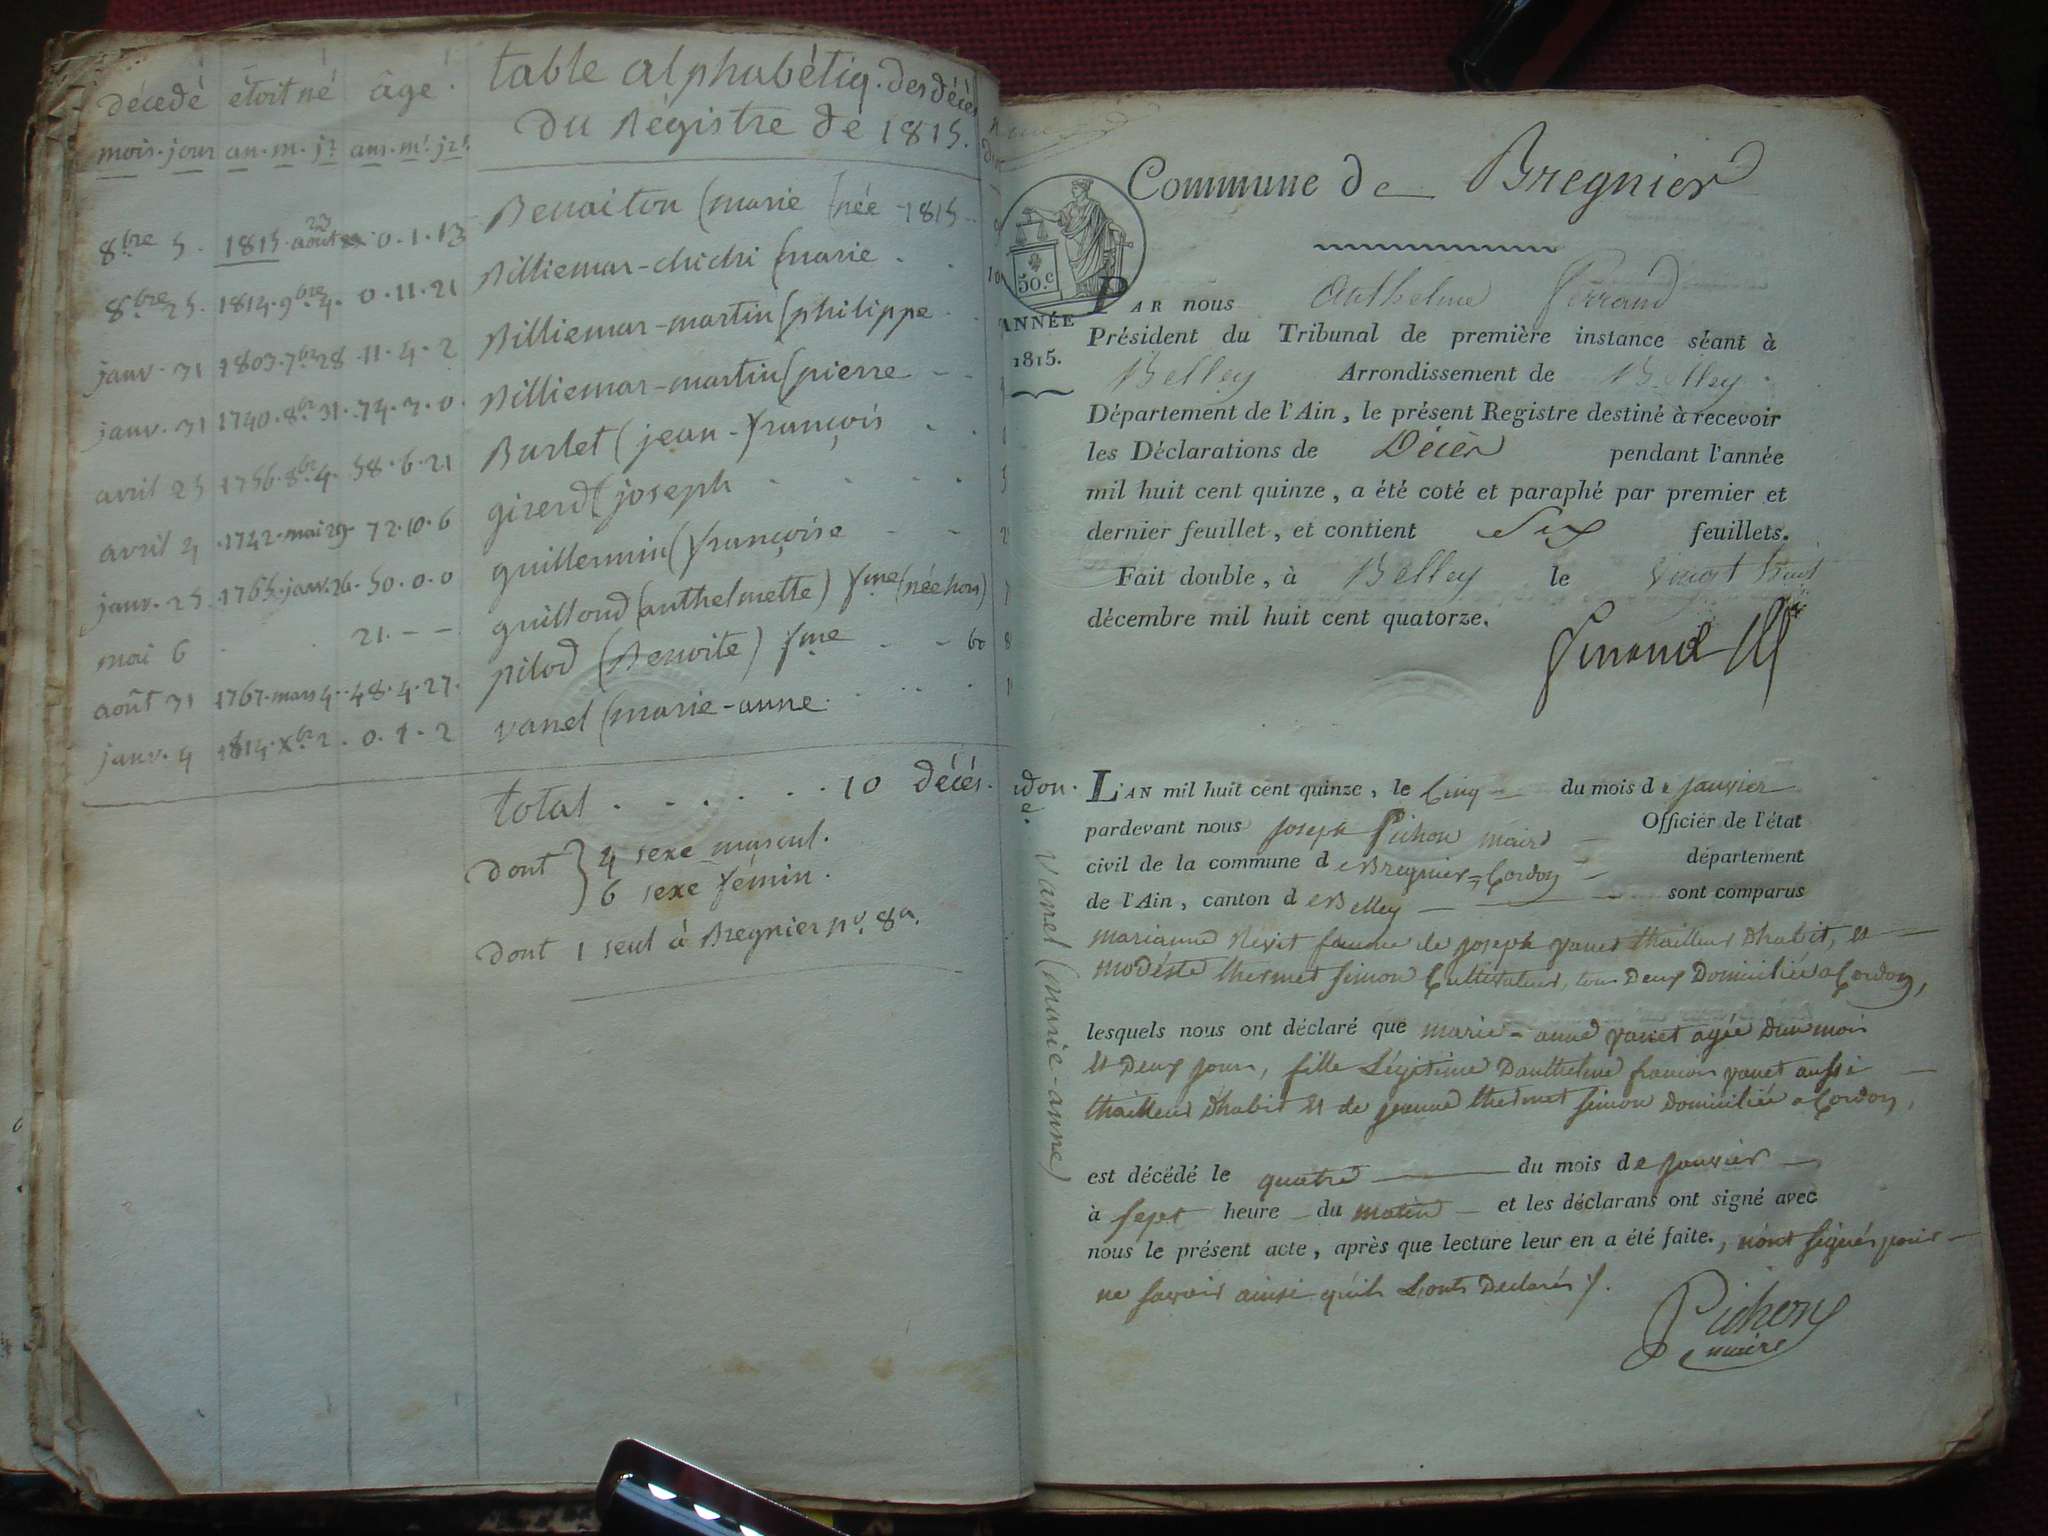 décedé étoit né âgé table alphabétiq. des décès
mois. jour an. m. jr ans. m. jrs du Régistre de 1815.
8bre 5. 1815. août 23 0. 1. 13 Benaiton (marie née 1815
8bre 25. 1814. 9bre 4. 0. 11. 21 Billiemar-chichi (marie
janv. 31 1803. 7bre 28 11. 4. 2 Billiemar-martin (philippe
janv. 31 1740. 8bre 31. 74. 3. 0. Billiemar-martin (pierre
avril 25 1756. 8bre 4. 58. 6. 21 Burlet (jean-françois
avril 4 1742. mai 29 72. 10. 6 girerd (joseph
janv. 25. 1765. janv. 26. 50. 0. 0 guillermin (françoise
mai 6 . . 21. – – guilloud (anthelmette) fme (née hors)
août 31 1767. mars 4. 48. 4. 27. pilod (Benoite) fme
janv. 4 1814. Xbre 2. 0. 1. 2 vanel (marie-anne.
total . . . . . . . 10 décès.
dont } 4 sexe mascul.
6 sexe fémin.
dont 1 seul à Bregnier no. 8.
Commune de Bregnier
50.c
ANNÉE
1815.
PAR nous Anthelme Ferrand
Président du Tribunal de première instance séant à
Belley Arrondissement de Belley.
Département de l'Ain, le présent Registre destiné à recevoir
les Déclarations de Décès pendant l'année
mil huit cent quinze, a été coté et paraphé par premier et
dernier feuillet, et contient Six feuillets.
Fait double, à Belley le vingt huit
décembre mil huit cent quatorze.
L'AN mil huit cent quinze, le Cinq du mois de janvier
pardevant nous joseph Pichon maire Officier de l'état
civil de la commune de Bregnier=Cordon département
de l'Ain, canton de Belley sont comparus
marianne femme de joseph vanel thailleur dhabit, et
modéste thermet simon Cultivateur, tous Deux Domiciliés a Cordon,
lesquels nous ont déclaré que marie-anne vanel agée dun mois
et Deux jours, fille Légitime Danthelme françois vanel aussi
thailleur dhabit et de jeanne thermet simon domiciliée a Cordon,
est décédé le quatre du mois de janvier
à sept heure du matin et les déclarans ont signé avec
nous le présent acte, après que lecture leur en a été faite., nont signés pour
ne savoir ainsi quils Lonts Declarés.
Pichon
maire
Vanel (marie-anne)